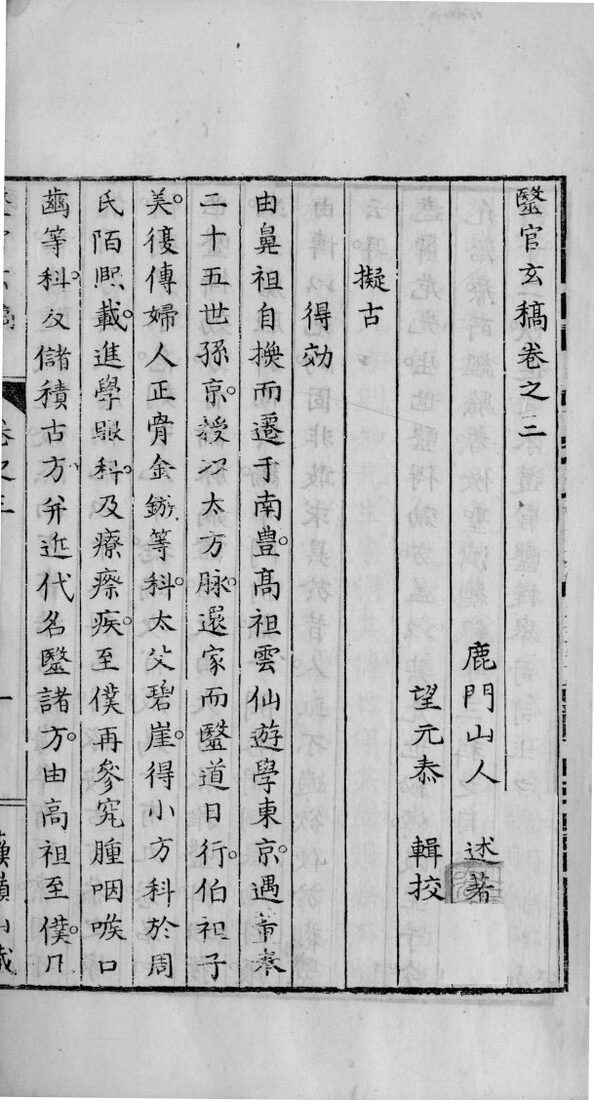 毉官玄稿卷之二
鹿門山人　述著
望元泰　輯挍
擬古。
得効
由鼻祖自撫而遷于南豊。高祖雲仙遊學東京。遇董奉
二十五世孫京。授以大方脉。還家而毉道日行。伯祖子
美。復傳婦人正骨金鏃等科。太父碧崖。得小方科於周
氏陌熈載。進學眼科。及療瘵疾。至僕再參究腫咽喉口
齒等科。及儲積古方。并近代名毉諸方。由高祖至僕。凡
卷之二
一